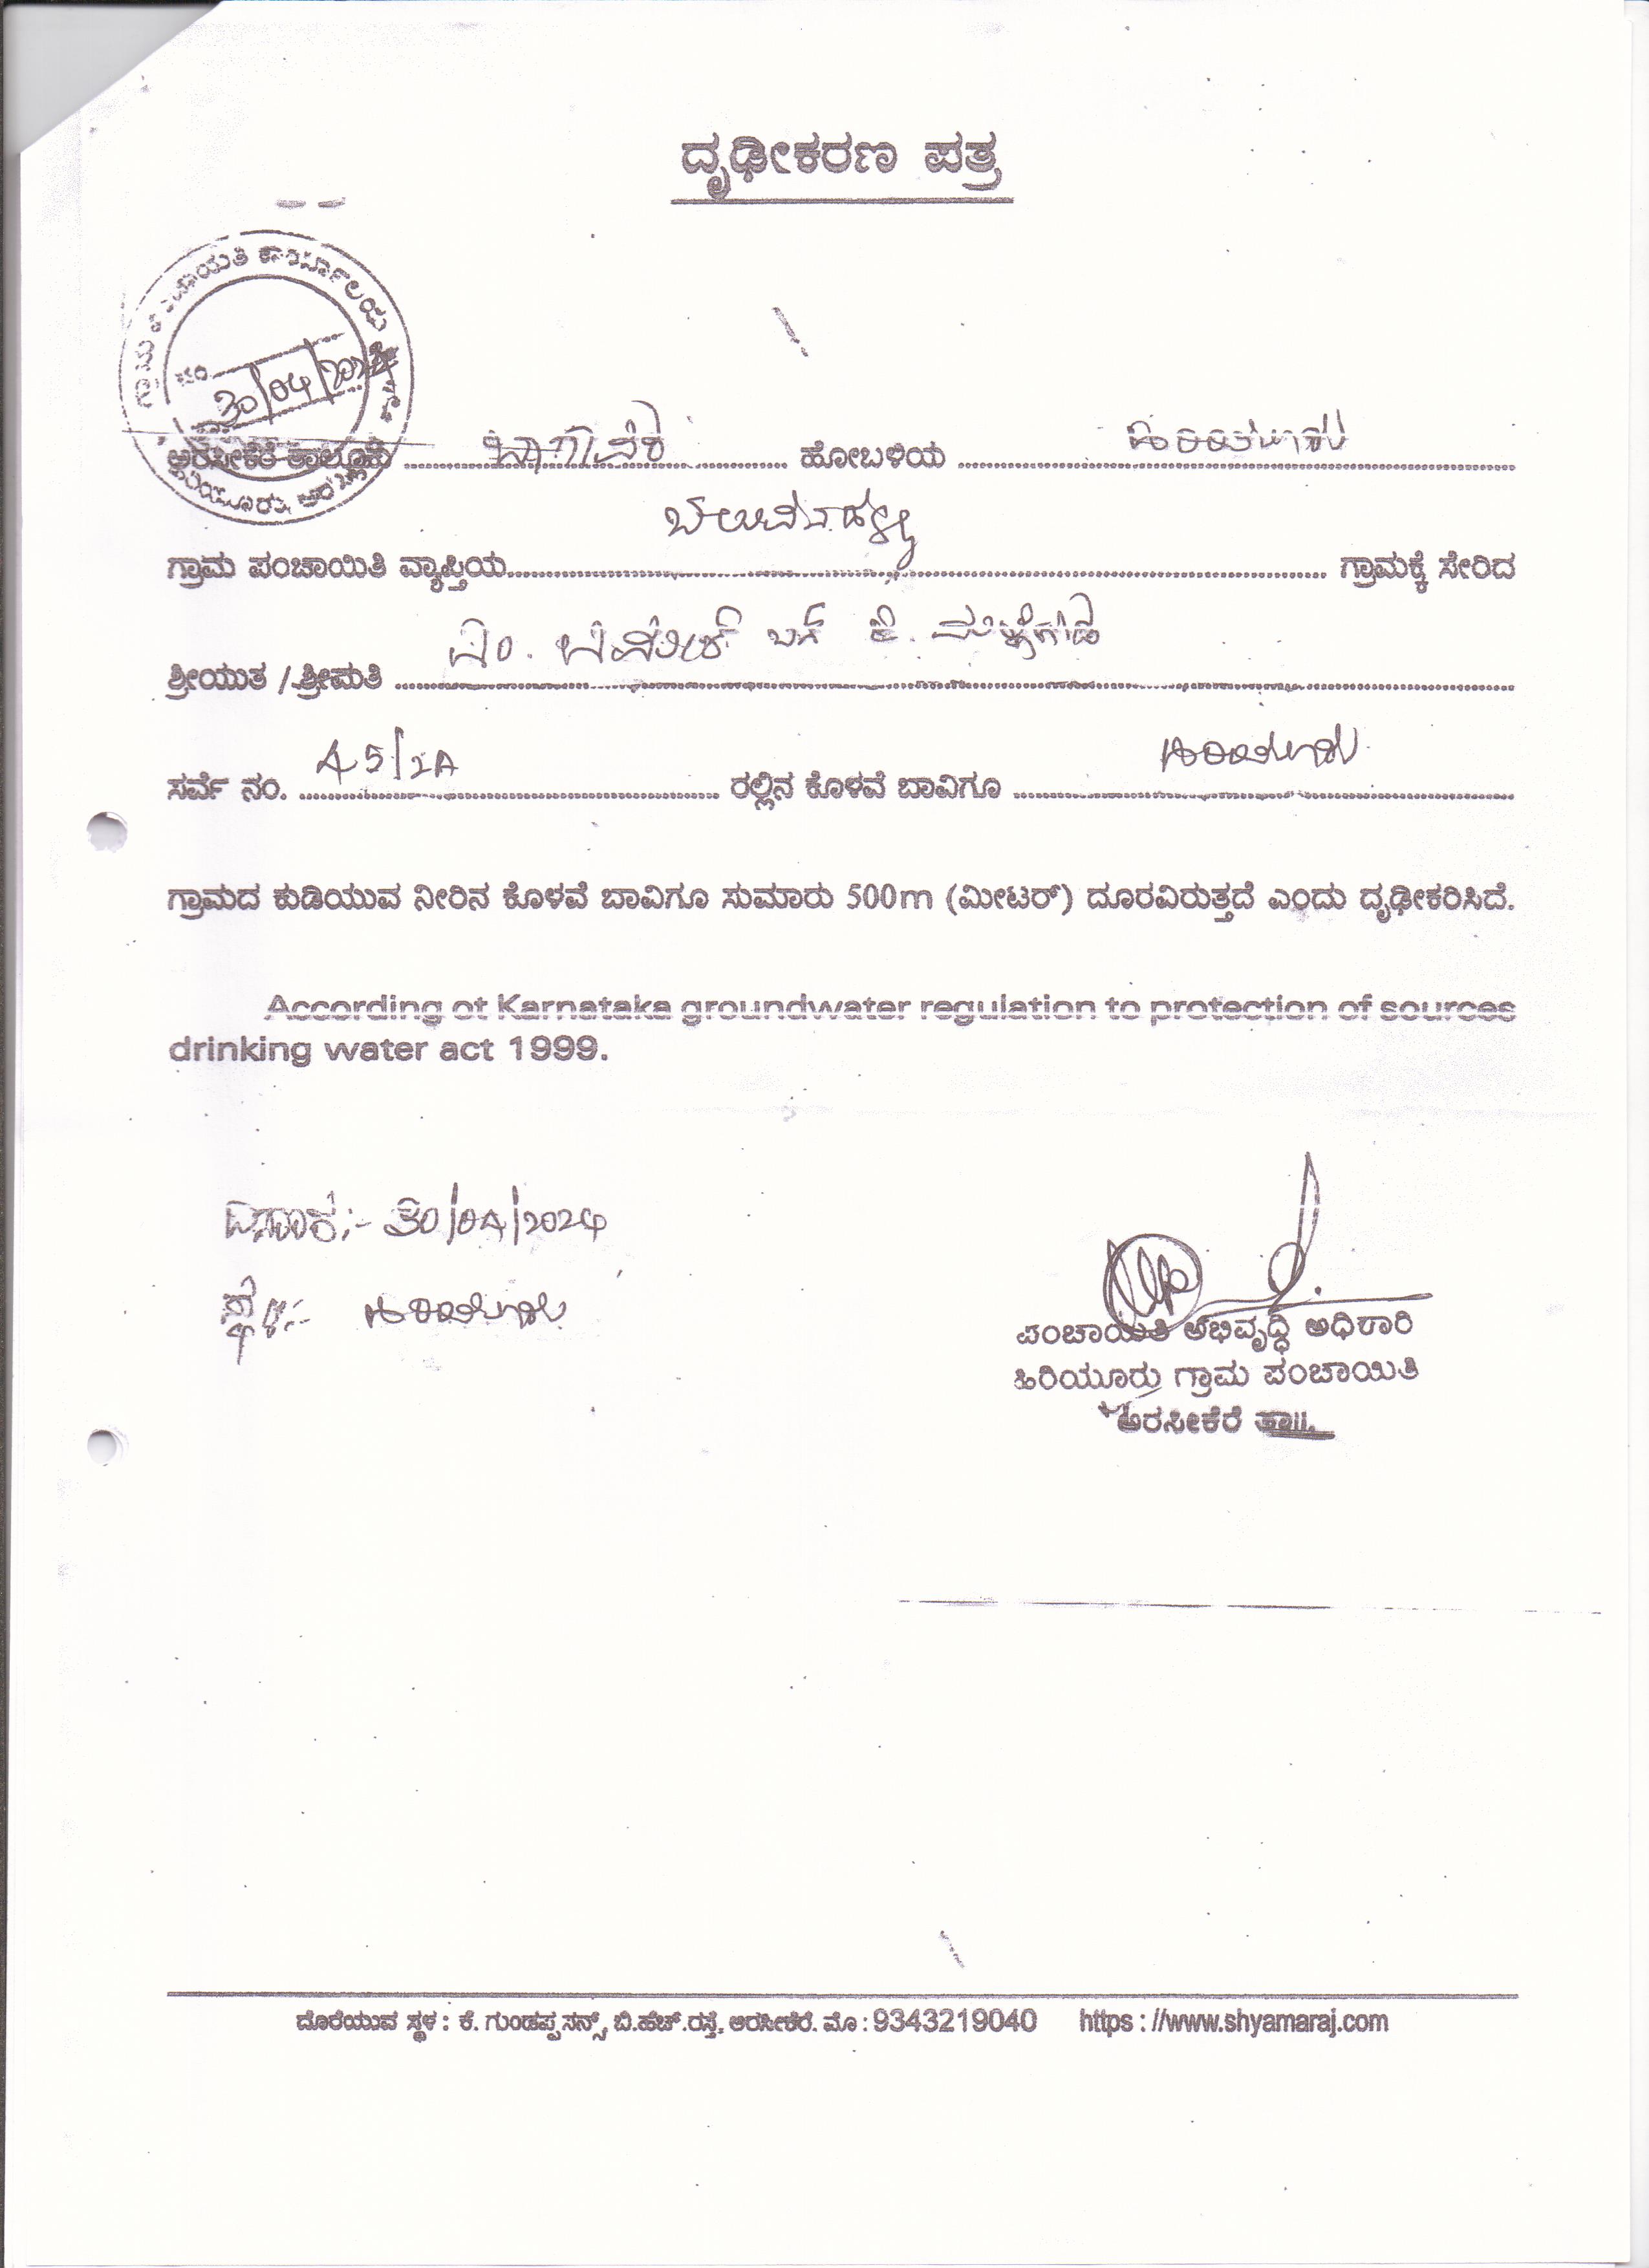 ದೃಢೀಕರಣ ಪತ್ರ
30/04/2024
ಅರಸೀಕೆರೆ ತಾಲ್ಲೂಕು ಬಾಗಾವರ ಹೋಬಳಿಯ
ಗ್ರಾಮ ಪಂಚಾಯಿತಿ ವ್ಯಾಪ್ತಿಯ ಗ್ರಾಮಕ್ಕೆ ಸೇರಿದ
ಶ್ರೀಯುತ / ಶ್ರೀಮತಿ ಎಂ. ಬಿನ್
ಸರ್ವೆ ನಂ. 45/2A ರಲ್ಲಿನ ಕೊಳವೆ ಬಾವಿಗೂ ಹಿರಿಯೂರು
ಗ್ರಾಮದ ಕುಡಿಯುವ ನೀರಿನ ಕೊಳವೆ ಬಾವಿಗೂ ಸುಮಾರು 500m (ಮೀಟರ್) ದೂರವಿರುತ್ತದೆ ಎಂದು ದೃಢೀಕರಿಸಿದೆ.
According ot Karnataka groundwater regulation to protection of sources
drinking water act 1999.
ದಿನಾಂಕ:- 30/04/2024
ಸ್ಥಳ:- ಹಿರಿಯೂರು
ಪಂಚಾಯಿತಿ ಅಭಿವೃದ್ಧಿ ಅಧಿಕಾರಿ
ಹಿರಿಯೂರು ಗ್ರಾಮ ಪಂಚಾಯಿತಿ
ಅರಸೀಕೆರೆ ತಾ||.
ದೊರೆಯುವ ಸ್ಥಳ : ಕೆ. ಗುಂಡಪ್ಪ ಸನ್ಸ್, ಬಿ.ಹೆಚ್.ರಸ್ತೆ, ಅರಸೀಕೆರೆ. ಮೊ : 9343219040 https : //www.shyamaraj.com